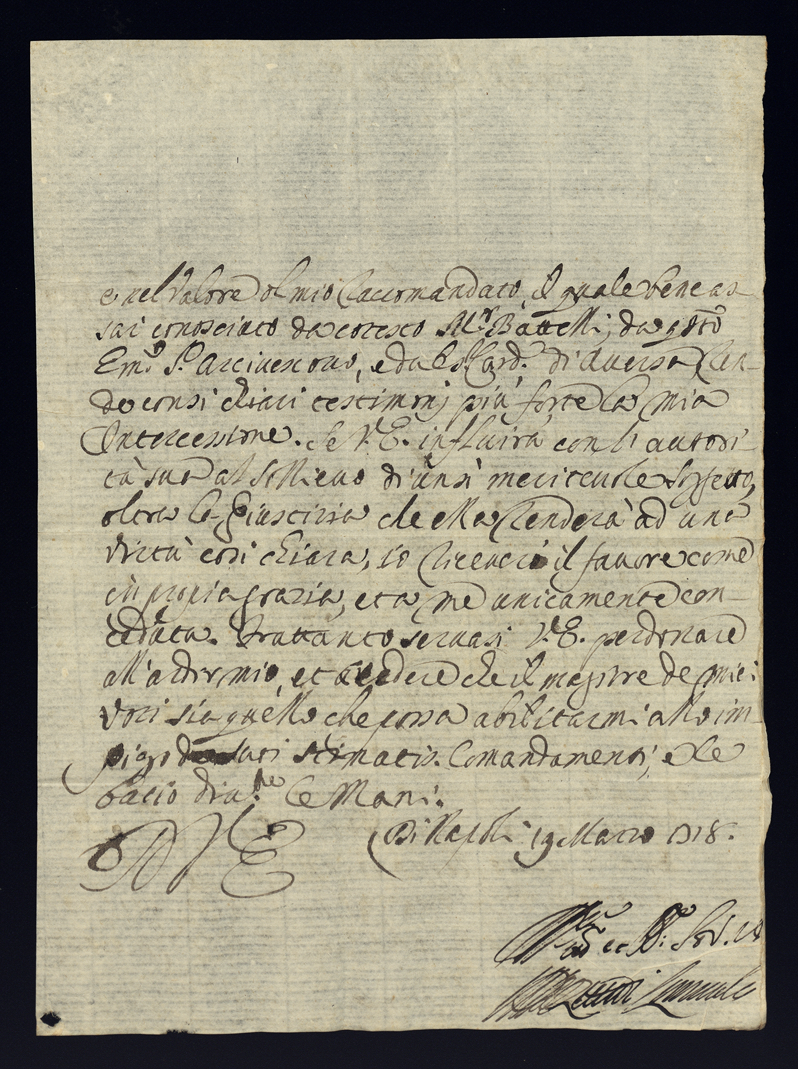 e nel valore del mio Raccomandato, il quale bene as
sai conosciuto da cotesto Mr. Battelli, da qsto
Emo. Sr. Arcivescovo, e da Card. di Aversa Ren-
de con sì chiari testimonj più forte la mia
Intercessione. Se V.E. influirà con l'autori-
tà sua al sollievo d'un sì meritevole soggetto,
oltra la Giustizia che ella renderà ad una
virtù così chiara, io riceverò il favore come
in propia grazia, et a me unicamente con-
ceduta. Trattanto servasi V.E. perdonare
all'ardir mio, et credere che il maggiore de miei
voti sia quello che possa abilitarmi allo im-
piego de suoi stimatis. Comandamenti, e le
bacio le Mani.
D V E
Di Napoli 19 Marzo 1718.